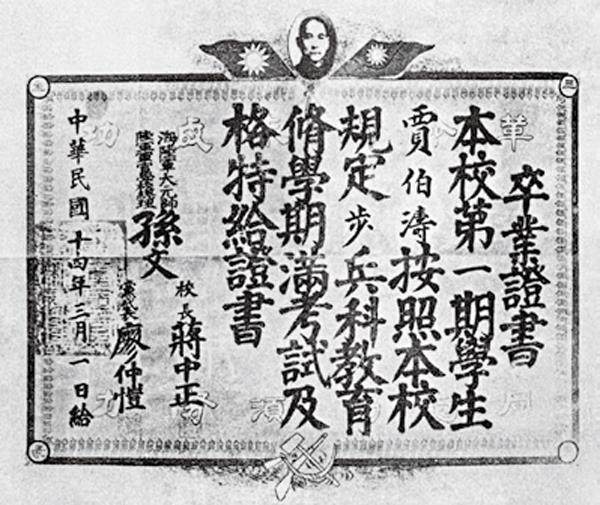 卒業證書
本校第一期學生
賈伯濤按照本校
規定步兵科教育
脩學期滿考試及
格特給證書
海陸軍大元帥
陸軍軍官學校總理
孫文
校長 蔣中正
黨代表 廖仲愷
中華民國十四年三月一日給